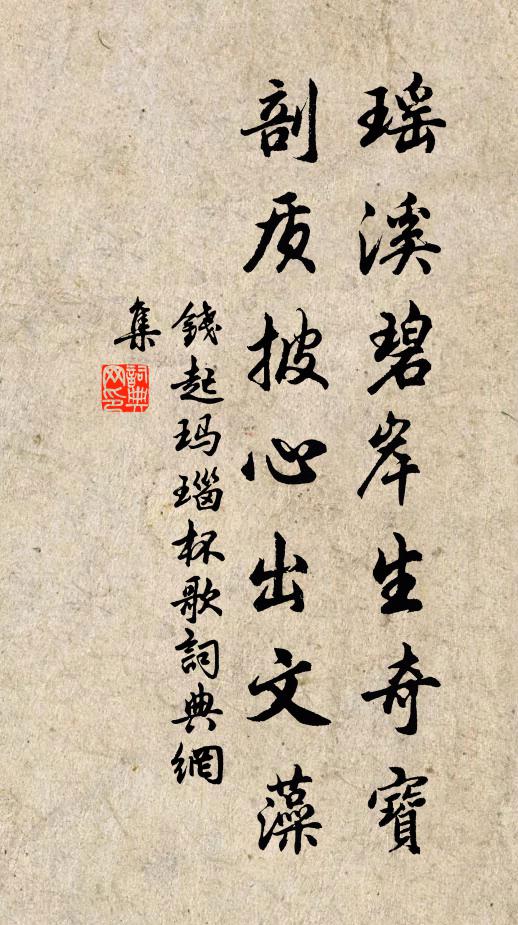 瑶溪碧岸生奇寶
剖质披心出文藻
錢起玛瑙杯歌詞典網
集
詞典
网印